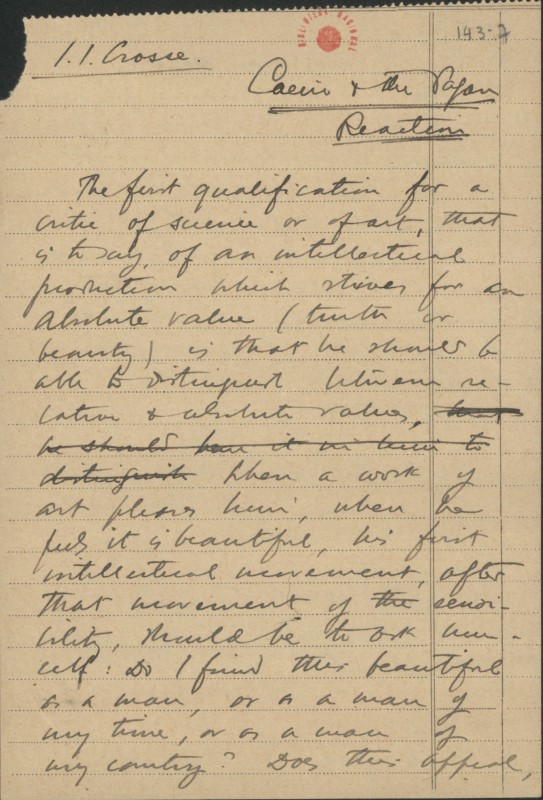 143-7
BIBLIOTECA NACIONAL
I. I. Crosse.
Caeiro & the Pagan
Reaction
The first qualification for a
critic of science or of art, that
is to say, of an intellectual
production which strives for an
absolute value (truth or
beauty) is that he should be
able to distinguish between re-
lative & absolute values, that
he should have it in him to
distinguish When a work of
art pleases him, when he
feels it is beautiful, his first
intellectual movement, after
that movement of the sensi-
bility, should be to ask him-
self: Do I find this beautiful
as a man, or as a man of
my time, or as a man of
my country? Does this appeal,